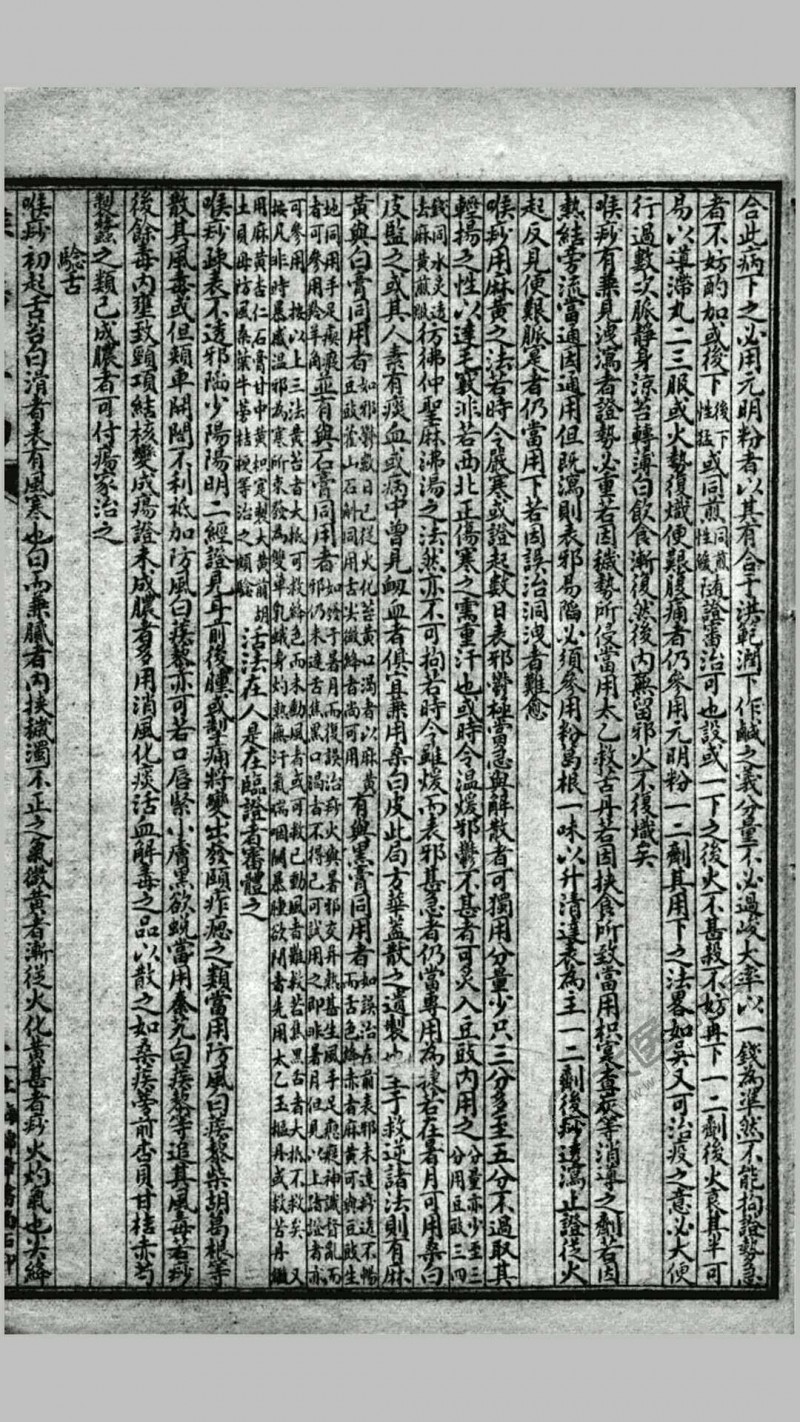 合此病下之必用元明粉者以其有合于洪範潤下作鹹之義分量不必過峻大率以一錢為準然不能拘證勢急
者不妨酌加或後下後下性猛或同煎同煎性緩隨證當治可也設或一下之後火不甚殺不妨再下一二劑後火衰其半可
易以導滯丸二三服或火勢復熾便艱腹痛者仍參用元明粉一二劑其用下之法畧如吳又可法疫之意必大便
行過數次脈靜身涼苔轉薄白飲食漸復然後內無留邪火不復熾矣
喉痧有兼見洩瀉者證勢必重若因穢勢所侵當用太乙救苦丹若因挾食所致當用枳實查炭等消導之劑若因
熱結旁流當通因通用但既瀉則表邪易陷必須參用粉葛根一味以升清達表為主一二劑後痧透瀉止證從火
起反見便艱脈實者仍當用下若因誤治洞洩者難愈
喉痧用麻黃之法若時令嚴寒或證起數日表邪鬱極當急與解散者可獨用分量少只三分多至五分不過取其
輕揚之性以達毛竅非若西北正傷寒之需重汗也或時令溫煖邪鬱不甚者可炙入豆豉內用之分量亦少至三分用豆豉三四
錢同水炙透去麻黃煎服彷彿仲聖麻沸湯之法然亦不可拘若時令雖煖而表邪甚急者仍當專用為穩若在暑月可用桑白
皮監之或其人素有痰血或病中曾見衄血者俱宜兼用桑白皮此局方華蓋散之遺製也至于救逆諸法則有麻
黃與白膏同用者如邪鬱數日已從火化苔黃口渴者以麻黃
地同用手足瘈瘲者可參用羚羊角並有與石膏同用者
可參用 按以上三法黃苔者大抵可救絳色而未動風者或可救已動風者難救苔焦黑舌者大抵不救矣 又
按凡非時暴感溫邪為寒所束發為雙單乳蛾身灼熱無汗氣喘咽關暴腫欲閉者先用太乙玉樞丹或救苦丹繼
用麻黃杏仁石膏甘中黃枳實製大黃前胡
土貝母防風桑葉牛蒡桔梗等治之頗驗活法在人是在臨證者審體之
喉痧疎表不透邪陷少陽陽明二經證見耳前後腫或掣痛將變出發頤痄腮之類當用防風白蒺藜柴胡葛根等
散其風毒或但頰車開闔不利祗加防風白蒺藜亦可若口唇緊小膚黑欲蛻當用秦艽白蒺藜等追其風毒若痧
後餘毒內壅致頸項結核變成瘍證未成膿者多用消風化痰活血解毒之品以散之如桑蒺蒡前杏貝甘桔赤芍
製蠶之類已成膿者可付瘍家治之
驗舌
喉痧初起舌苔白滑者表有風寒也白而兼膩者內挾穢濁不正之氣微黃者漸從火化黃甚者痧火灼氣也尖絳